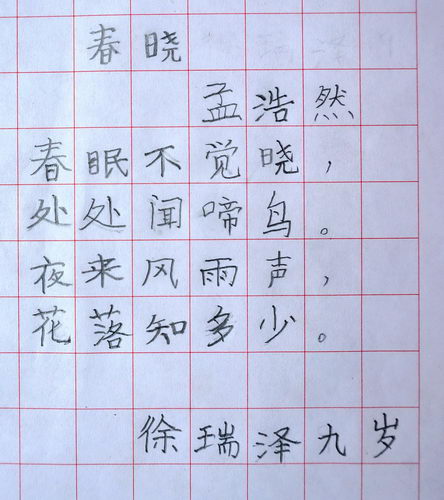 春晓
孟浩然
春眠不觉晓，
处处闻啼鸟。
夜来风雨声，
花落知多少。
徐瑞泽九岁